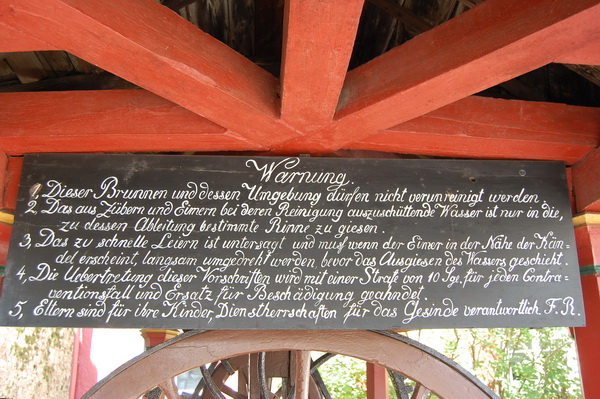 Warnung.
1. Dieser Brunnen und dessen Umgebung dürfen nicht verunreinigt werden.
2, Das aus Zübern und Eimern bei deren Reinigung auszuschüttende Wasser ist nur in die,
zu dessen Ableitung bestimmte Rinne zu giesen.
3, Das zu schnelle Leiern ist untersagt und muß wenn der Eimer in der Nähe der Kän-
del erscheint, langsam umgedreht werden bevor das Ausgiesen des Wassers geschieht.
4, Die Uebertretung dieser Vorschriften wird mit einer Strafe von 10 Sgr. für jeden Contra-
ventionsfall und Ersatz für Beschädigung geahndet.
5, Eltern sind für ihre Kinder, Dienstherrschaften für das Gesinde verantwortlich F. R.